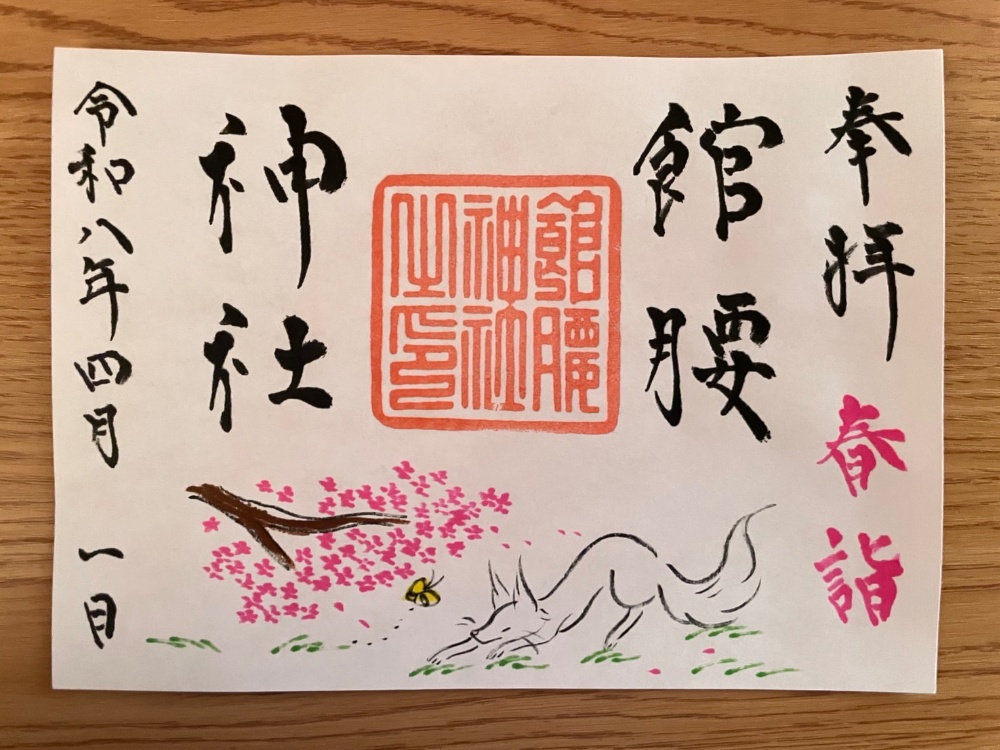 奉拝
春詣
館腰
館腰
神社
之印
神社
令和八年四月一日